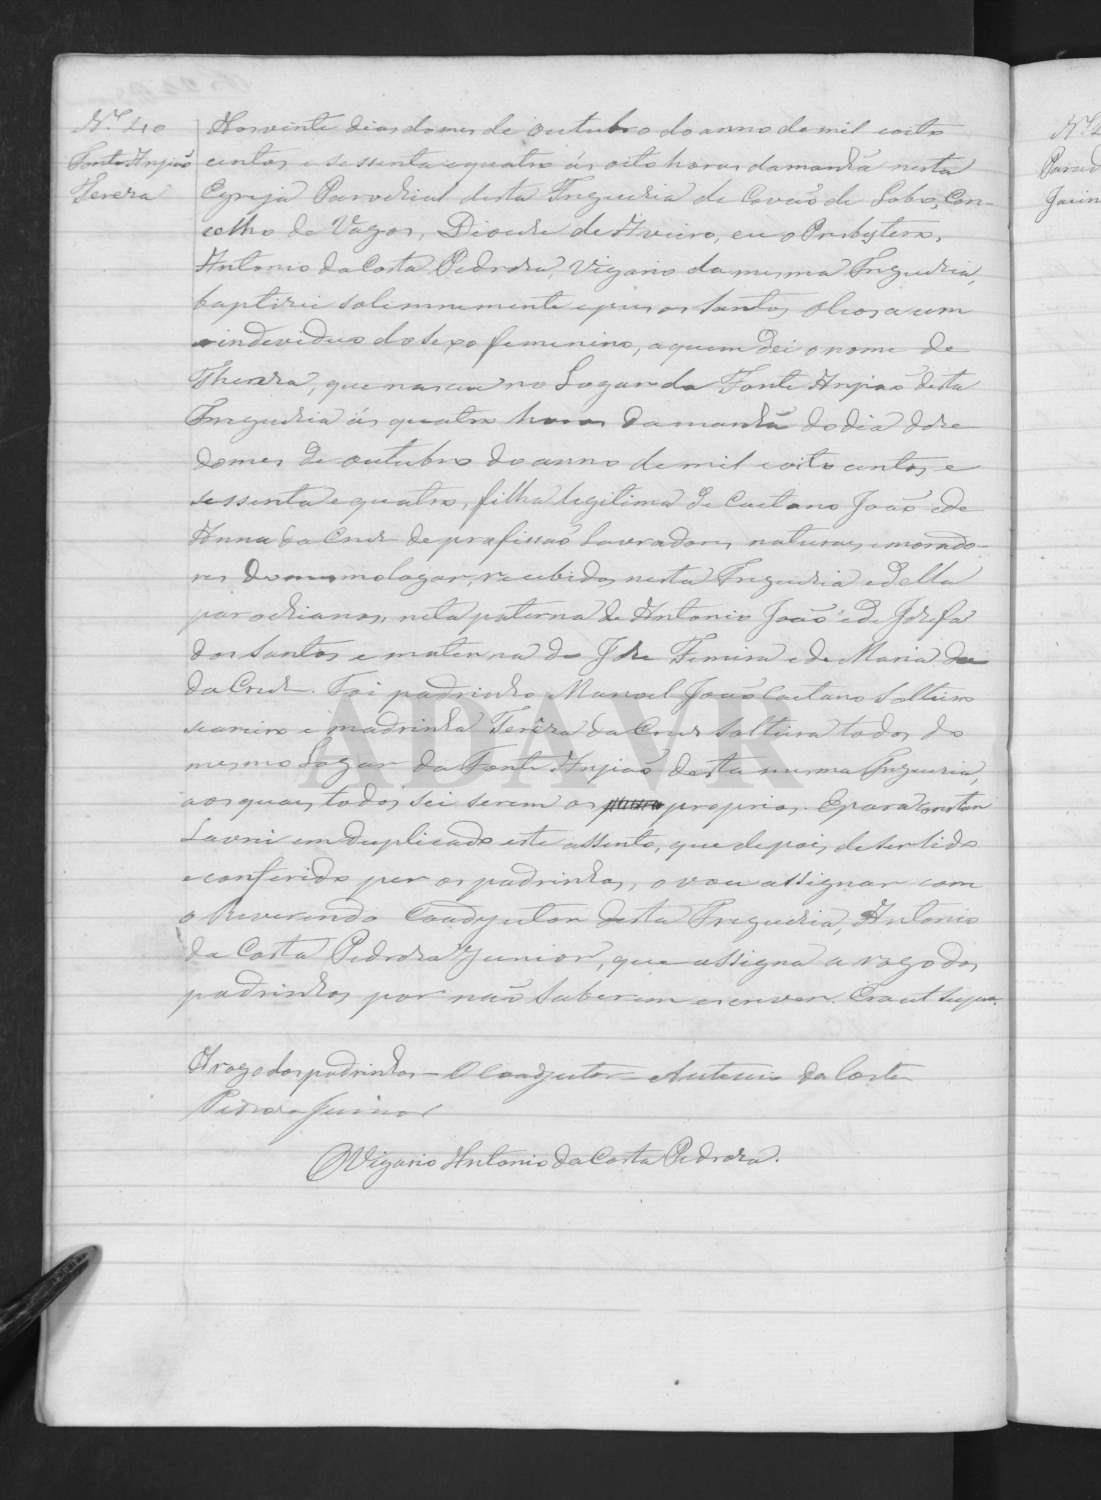 N.º 40
Fonte Anjião
Tereza
Aos vinte dias do mes de outubro do anno de mil e oito
centos e sessenta e quatro ás oito horas da manhã nesta
Egreja Parochial desta Freguezia de Covão do Lobo, Con-
celho de Vagos, Diocese de Aveiro, eu o Presbytero,
Antonio da Costa Pedroza, Vigario da mesma Freguezia,
baptizei solemnemente e puz os santos oleos a um
individuo do sexo femenino, a quem dei o nome de
Thereza, que nasceu no Logar da Fonte Anjião desta
Freguezia ás quatro horas da manhã do dia doze
do mes de outubro do anno de mil e oito centos e
sessenta e quatro, filha legitima de Caetano João e de
Anna da Cruz de profissão Lavradores, naturaes e morado-
res do mesmo logar, recebidos nesta Freguezia e della
parochianos, neta paterna de Antonio João e de Jozefa
dos Santos e materna de Joze Ferreira e de Maria da
da Cruz. Foi padrinho Manoel João Caetano Solteiro
e madrinha Tereza da Cruz Solteira todos do
mesmo Logar da Fonte Anjião desta mesma Freguezia,
aos quaes todos sei serem os proprios. E para constar
Lavrei em duplicado este assento, que depois de ser lido
e conferido per os padrinhos, o vou assignar com
o Reverendo Coadjutor desta Freguezia, Antonio
da Costa Pedroza Junior, que assigna a rogo dos
padrinhos por não saberem escrever. Era ut supra.
A rogo dos padrinhos - O Coadjutor - Antonio da Costa
Pedroza Junior
O Vigario Antonio da Costa Pedroza.
ADAVR
N.º 4